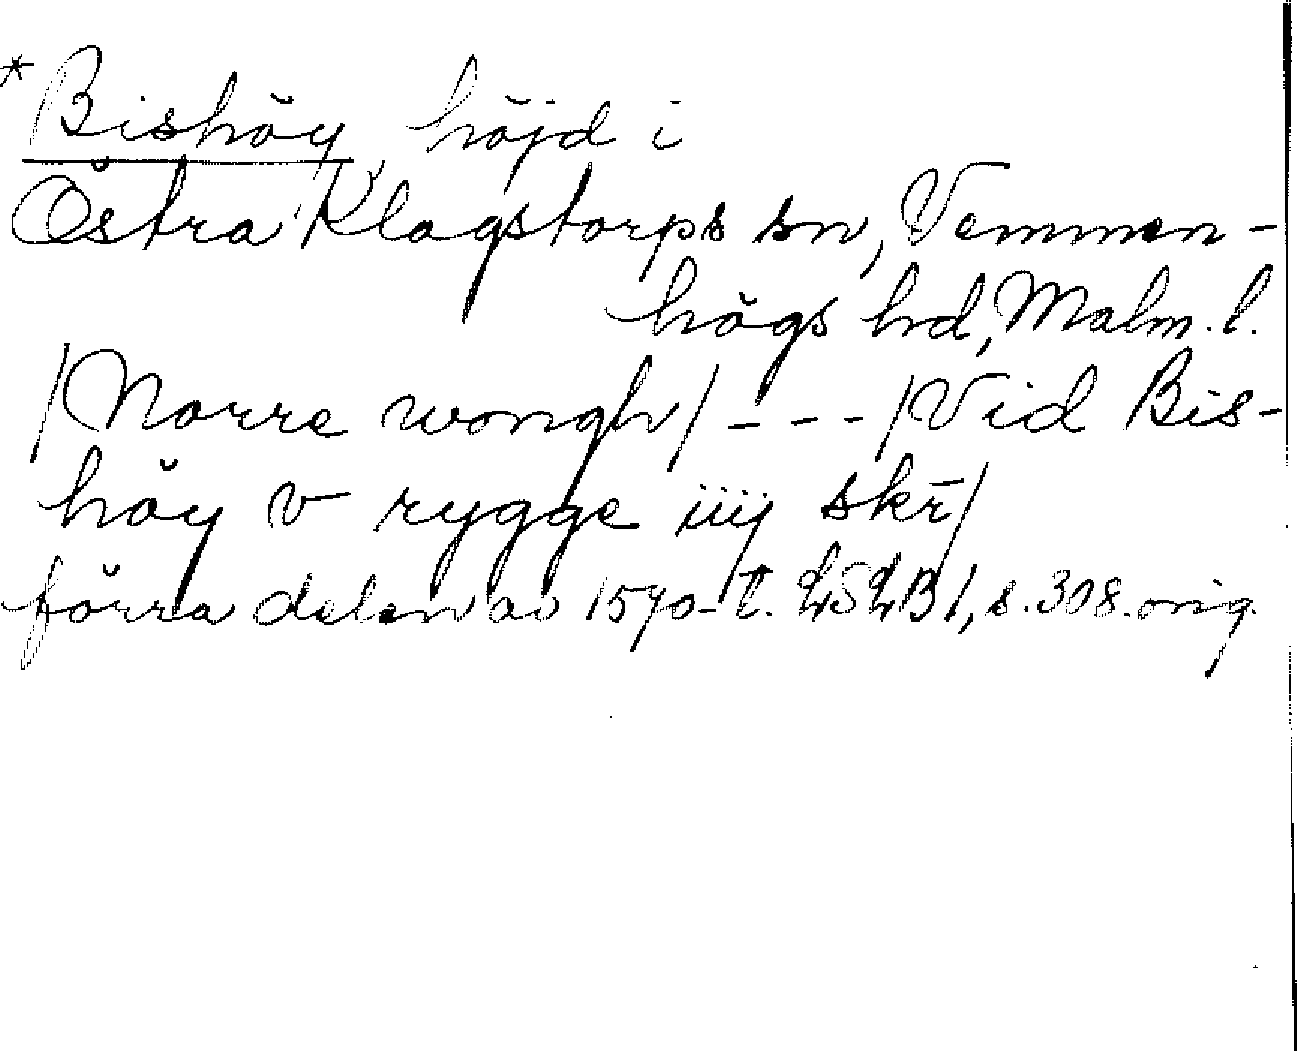 *Bishöy, höjd i
Östra Klagstorps sn, Vemmen-
högs hd, Malm. l.
/Norre wongh/ - - - /Vid Bis-
höy v rygge iiij skr̄/
förra delen av 1570-t. LSLB1, s. 308. orig.